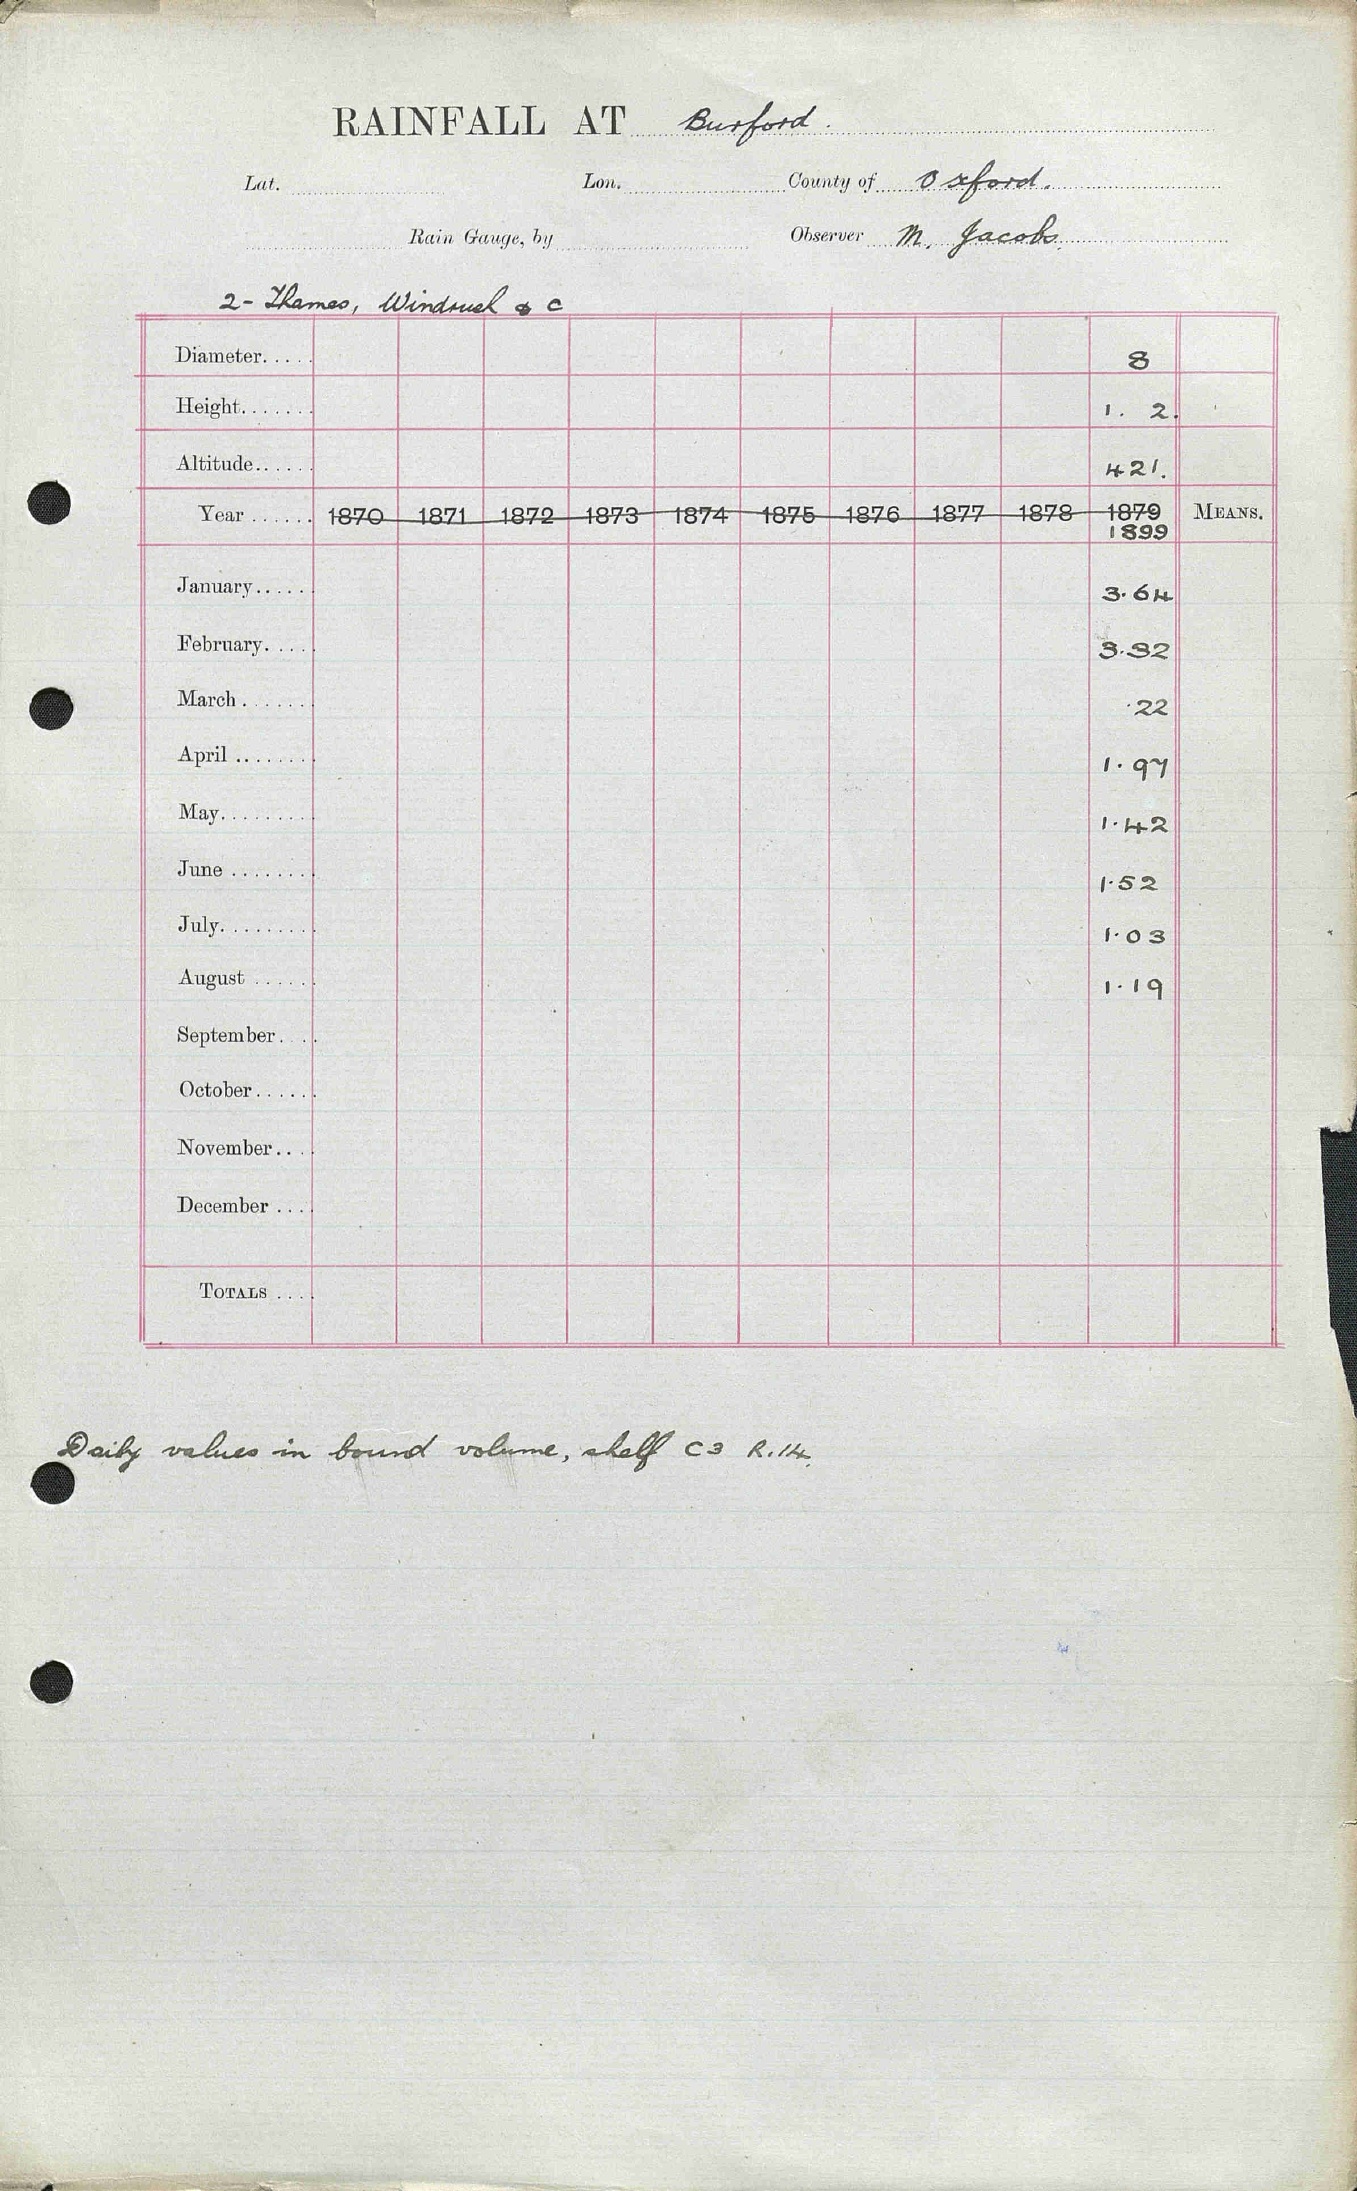 RAINFALL AT Burford.
Lat. Lon. County of Oxford.
Rain Gauge, by Observer M. Jacobs.
2- Thames, Windrush & C
Diameter..... 8
Height....... 1. 2.
Altitude...... 421.
Year ...... 1870 1871 1872 1873 1874 1875 1876 1877 1878 1879 MEANS.
1899
January...... 3.64
February..... 3.32
March ....... .22
April ........ 1.97
May......... 1.42
June ........ 1.52
July......... 1.03
August ...... 1.19
September....
October......
November....
December ....
TOTALS ....
Daily values in bound volume, shelf C3 R.14.